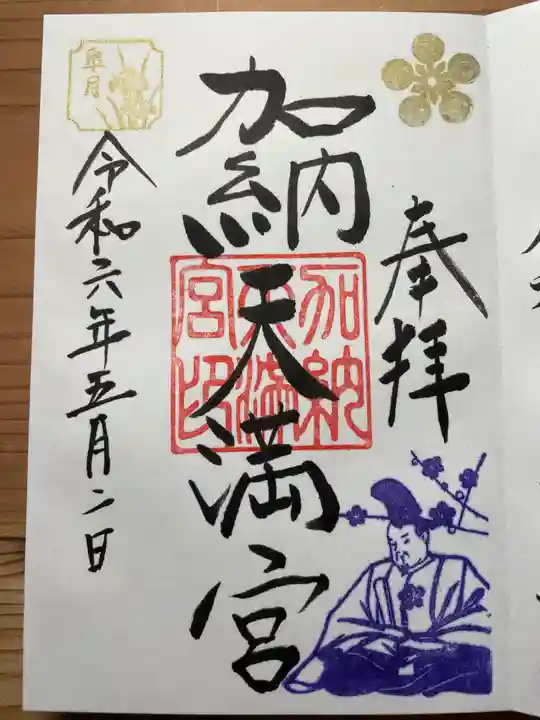 奉拝
加納天満宮
加納
天満
宮印
皐月
令和六年五月二日